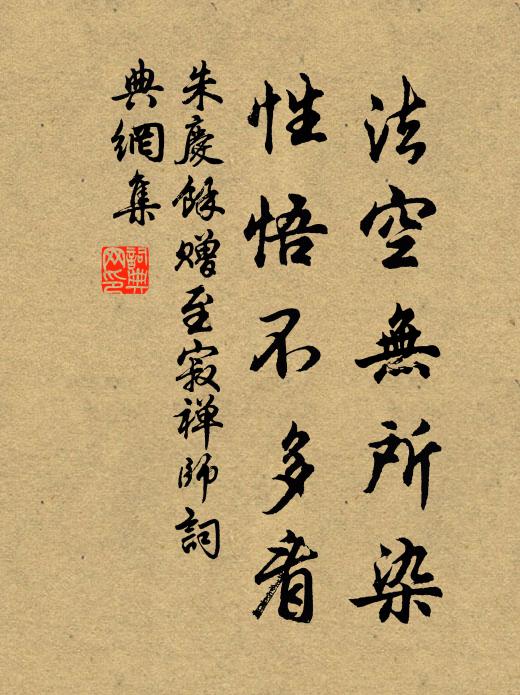 法空無所染
性悟不多看
朱慶餘贈至寂禅師詞
典網集
詞典網印